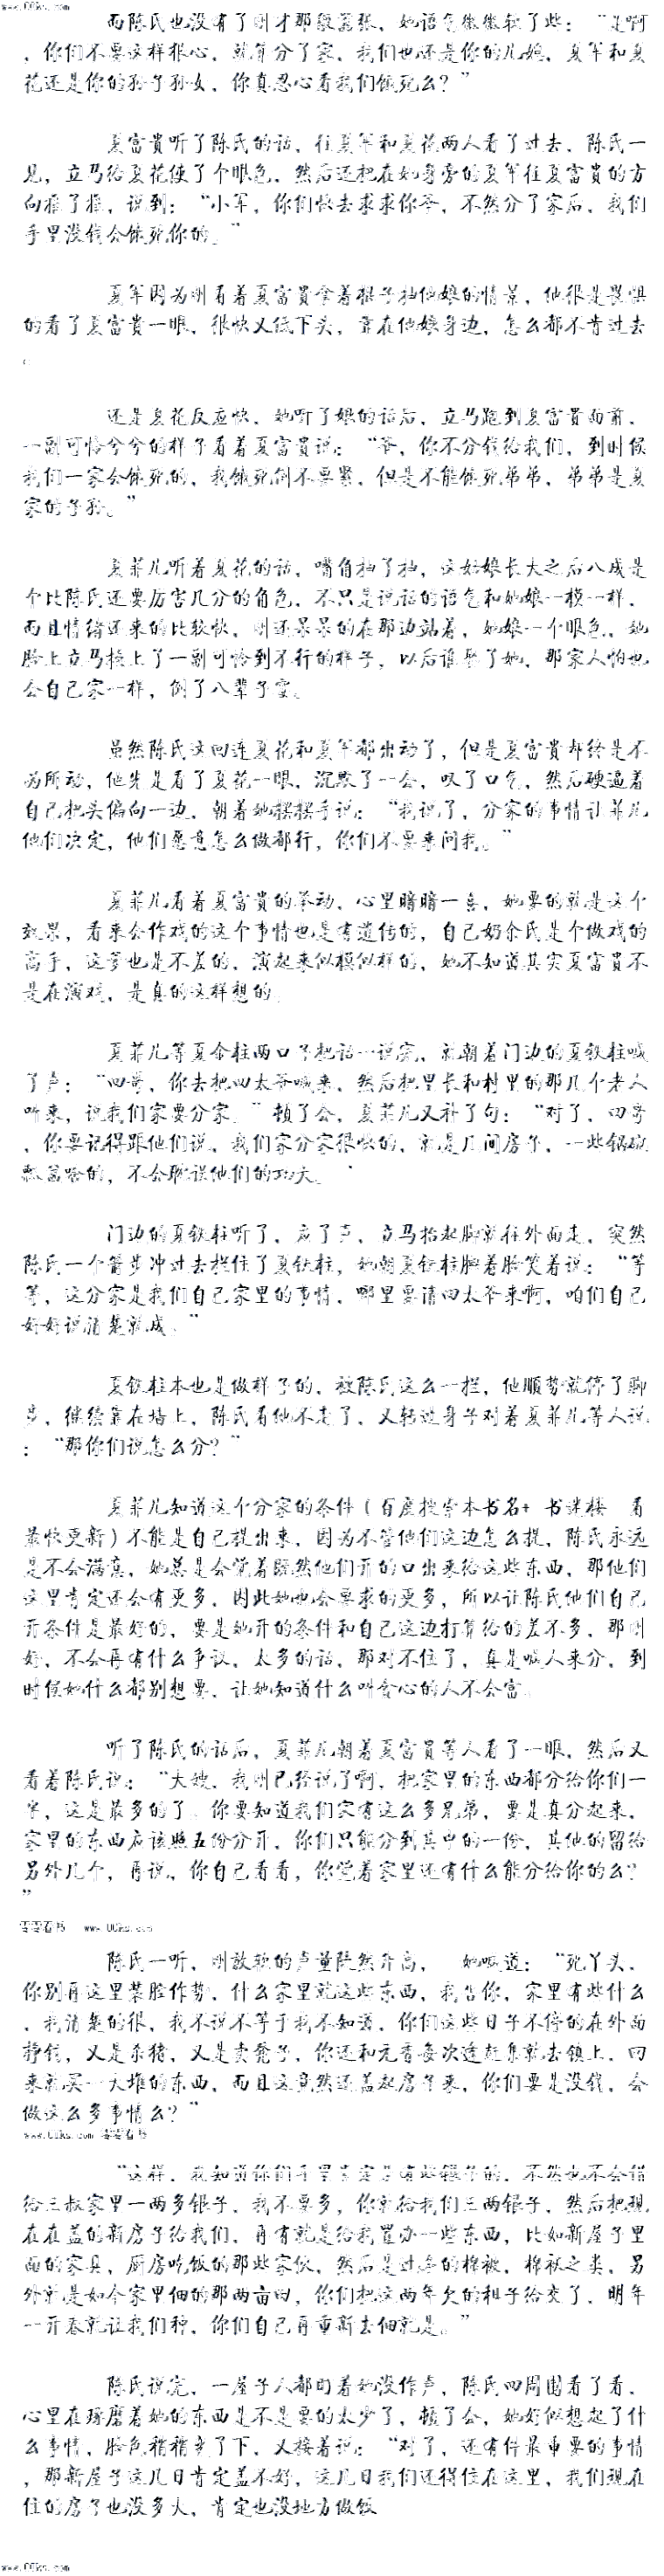 www.00ks.com
而陈氏也没有了刚才那般嚣张，她语气微微软了些：“是啊
，你们不要这样狠心，就算分了家，我们也还是你的儿媳，夏军和夏
花还是你的孙子孙女，你真忍心看我们饿死么？”
夏富贵听了陈氏的话，往夏军和夏花两人看了过去，陈氏一
见，立马给夏花使了个眼色，然后还把在她身旁的夏军往夏富贵的方
向推了推，说到：“小军，你们快去求求你爷，不然分了家后，我们
手里没钱会饿死你的。”
夏军因为刚看着夏富贵拿着棍子抽他娘的情景，他很是畏惧
的看了夏富贵一眼，很快又低下头，靠在他娘身边，怎么都不肯过去
。
还是夏花反应快，她听了娘的话后，立马跑到夏富贵面前，
一副可怜兮兮的样子看着夏富贵说：“爷，你不分钱给我们，到时候
我们一家会饿死的，我饿死倒不要紧，但是不能饿死弟弟，弟弟是夏
家的子孙。”
夏菲儿听着夏花的话，嘴角抽了抽，这姑娘长大之后八成是
个比陈氏还要厉害几分的角色，不只是说话的语气和她娘一模一样，
而且情绪还来的比较快，刚还呆呆的在那边站着，她娘一个眼色，她
脸上立马换上了一副可怜到不行的样子，以后谁娶了她，那家人怕也
会自己家一样，倒了八辈子霉。
虽然陈氏这回连夏花和夏军都出动了，但是夏富贵却终是不
为所动，他先是看了夏花一眼，沉默了一会，叹了口气，然后硬逼着
自己把头偏向一边，朝着她摆摆手说：“我说了，分家的事情让菲儿
他们决定，他们愿意怎么做都行，你们不要来问我。”
夏菲儿看着夏富贵的举动，心里暗暗一喜，她要的就是这个
效果，看来会作戏的这个事情也是有遗传的，自己奶余氏是个做戏的
高手，这爹也是不差的，演起来似模似样的，她不知道其实夏富贵不
是在演戏，是真的这样想的。
夏菲儿等夏金柱两口子把话一说完，就朝着门边的夏铁柱喊
了声：“四哥，你去把四太爷喊来，然后把里长和村里的那几个老人
叫来，说我们家要分家。”顿了会，夏菲儿又补了句：“对了，四哥
，你要记得跟他们说，我们家分家很快的，就是几间房子，一些锅碗
瓢盆啥的，不会耽误他们的功夫。”
门边的夏铁柱听了，应了声，立马抬起脚就往外面走，突然
陈氏一个箭步冲过去拦住了夏铁柱，她朝夏铁柱腆着脸笑着说：“等
等，这分家是我们自己家里的事情，哪里要请四太爷来啊，咱们自己
好好说清楚就成。”
夏铁柱本也是做样子的，被陈氏这么一拦，他顺势就停了脚
步，继续靠在墙上，陈氏看他不走了，又转过身子对着夏菲儿等人说
：“那你们说怎么分？”
夏菲儿知道这个分家的条件（百度搜索本书名+ 书迷楼　看
最快更新）不能是自己提出来，因为不管他们这边怎么提，陈氏永远
是不会满意，她总是会觉着既然他们开的口出来给这些东西，那他们
这里肯定还会有更多，因此她也会要求的更多，所以让陈氏他们自己
开条件是最好的，要是她开的条件和自己这边打算给的差不多，那刚
好，不会再有什么争议，太多的话，那对不住了，真是喊人来分，到
时候她什么都别想要，让她知道什么叫贪心的人不会富。
听了陈氏的话后，夏菲儿朝着夏富贵等人看了一眼，然后又
看着陈氏说：“大嫂，我刚已经说了啊，把家里的东西都分给你们一
半，这是最多的了，你要知道我们家有这么多兄弟，要是真分起来，
家里的东西应该照五份分开，你们只能分到其中的一份，其他的留给
另外几个，再说，你自己看看，你觉着家里还有什么能分给你的么？
”
零零看书　www.00ks.com
陈氏一听，刚放软的声量陡然升高，　她喊道：“死丫头，
你别再这里装腔作势，什么家里就这些东西，我告你，家里有些什么
，我清楚的很，我不说不等于我不知道，你们这些日子不停的在外面
挣钱，又是杀猪，又是卖凳子，你还和元香每次逢赶集就去镇上，回
来就买一大堆的东西，而且这竟然还盖起房子来，你们要是没钱，会
做这么多事情么？”
www.00ks.com 零零看书
“这样，我知道你们手里肯定是有些银子的，不然也不会借
给三叔家里一两多银子，我不要多，你就给我们三两银子，然后把现
在在盖的新房子给我们，再有就是给我置办一些东西，比如新屋子里
面的家具，厨房吃饭的那些家伙，然后是过冬的棉被，棉袄之类，另
外就是如今家里佃的那两亩田，你们把这两年欠的租子给交了，明年
一开春就让我们种，你们自己再重新去佃就是。”
陈氏说完，一屋子人都盯着她没作声，陈氏四周围看了看，
心里在琢磨着她的东西是不是要的太少了，顿了会，她好似想起了什
么事情，脸色稍稍变了下，又接着说：“对了，还有件最重要的事情
，那新屋子这几日肯定盖不好，这几日我们还得住在这里，我们现在
住的房子也没多大，肯定也没地方做饭
www.00ks.com